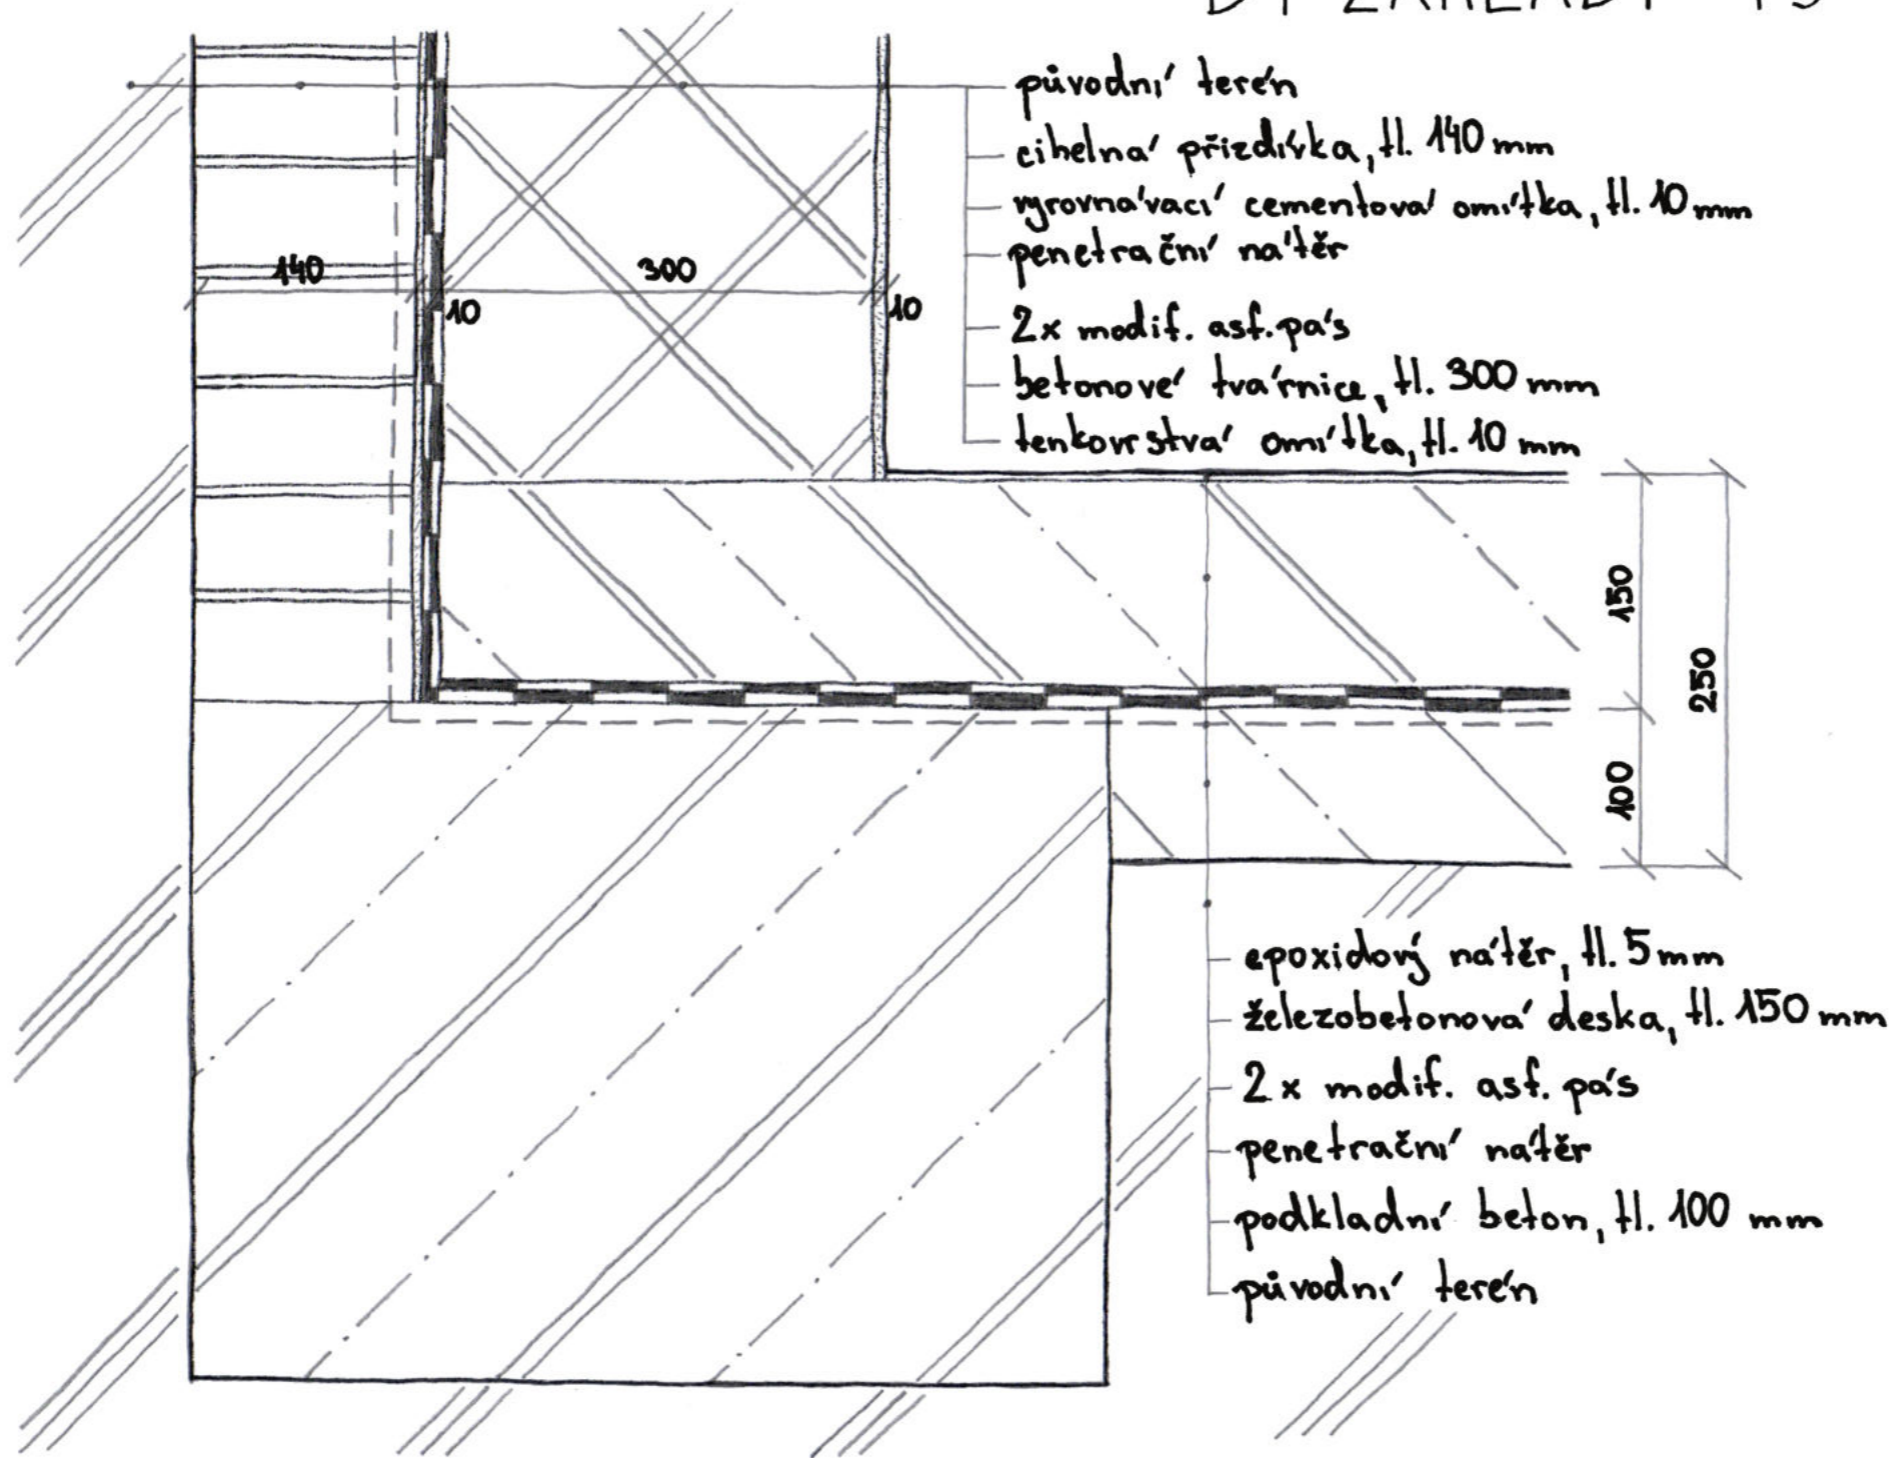 původní terén
cihelná přizdívka, tl. 140 mm
vyrovnávací cementová omítka, tl. 10 mm
penetrační nátěr
140
300
10
10
2x modif. asf. pás
betonové tvárnice, tl. 300 mm
tenkovrstvá omítka, tl. 10 mm
150
250
100
epoxidový nátěr, tl. 5 mm
železobetonová deska, tl. 150 mm
2x modif. asf. pás
penetrační nátěr
podkladní beton, tl. 100 mm
původní terén